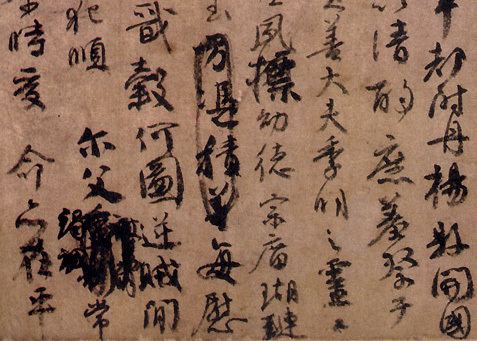 車都尉丹楊縣開國
以清酌庶羞祭于
善大夫季明之靈曰
夙標幼德宗廟瑚璉
玉方憑積善每慰
戩穀何圖逆賊間
犯順爾父竭誠常
時受命亦在平